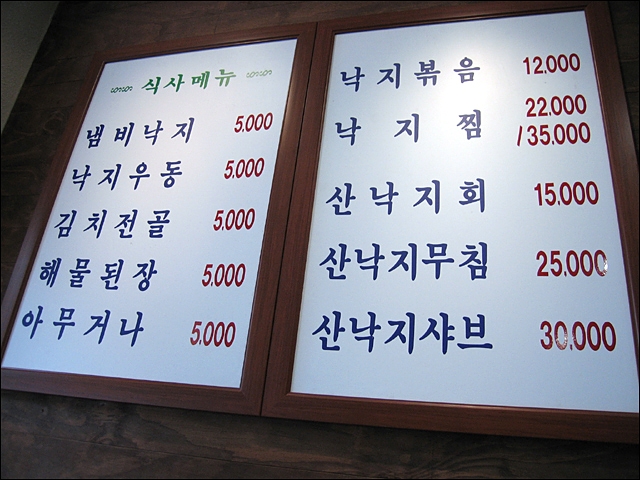 식사메뉴
냄비낙지 5.000
낙지우동 5.000
김치전골 5.000
해물된장 5.000
아무거나 5.000
낙지볶음 12.000
낙지찜 22.000
/35.000
산낙지회 15.000
산낙지무침 25.000
산낙지샤브 30.000